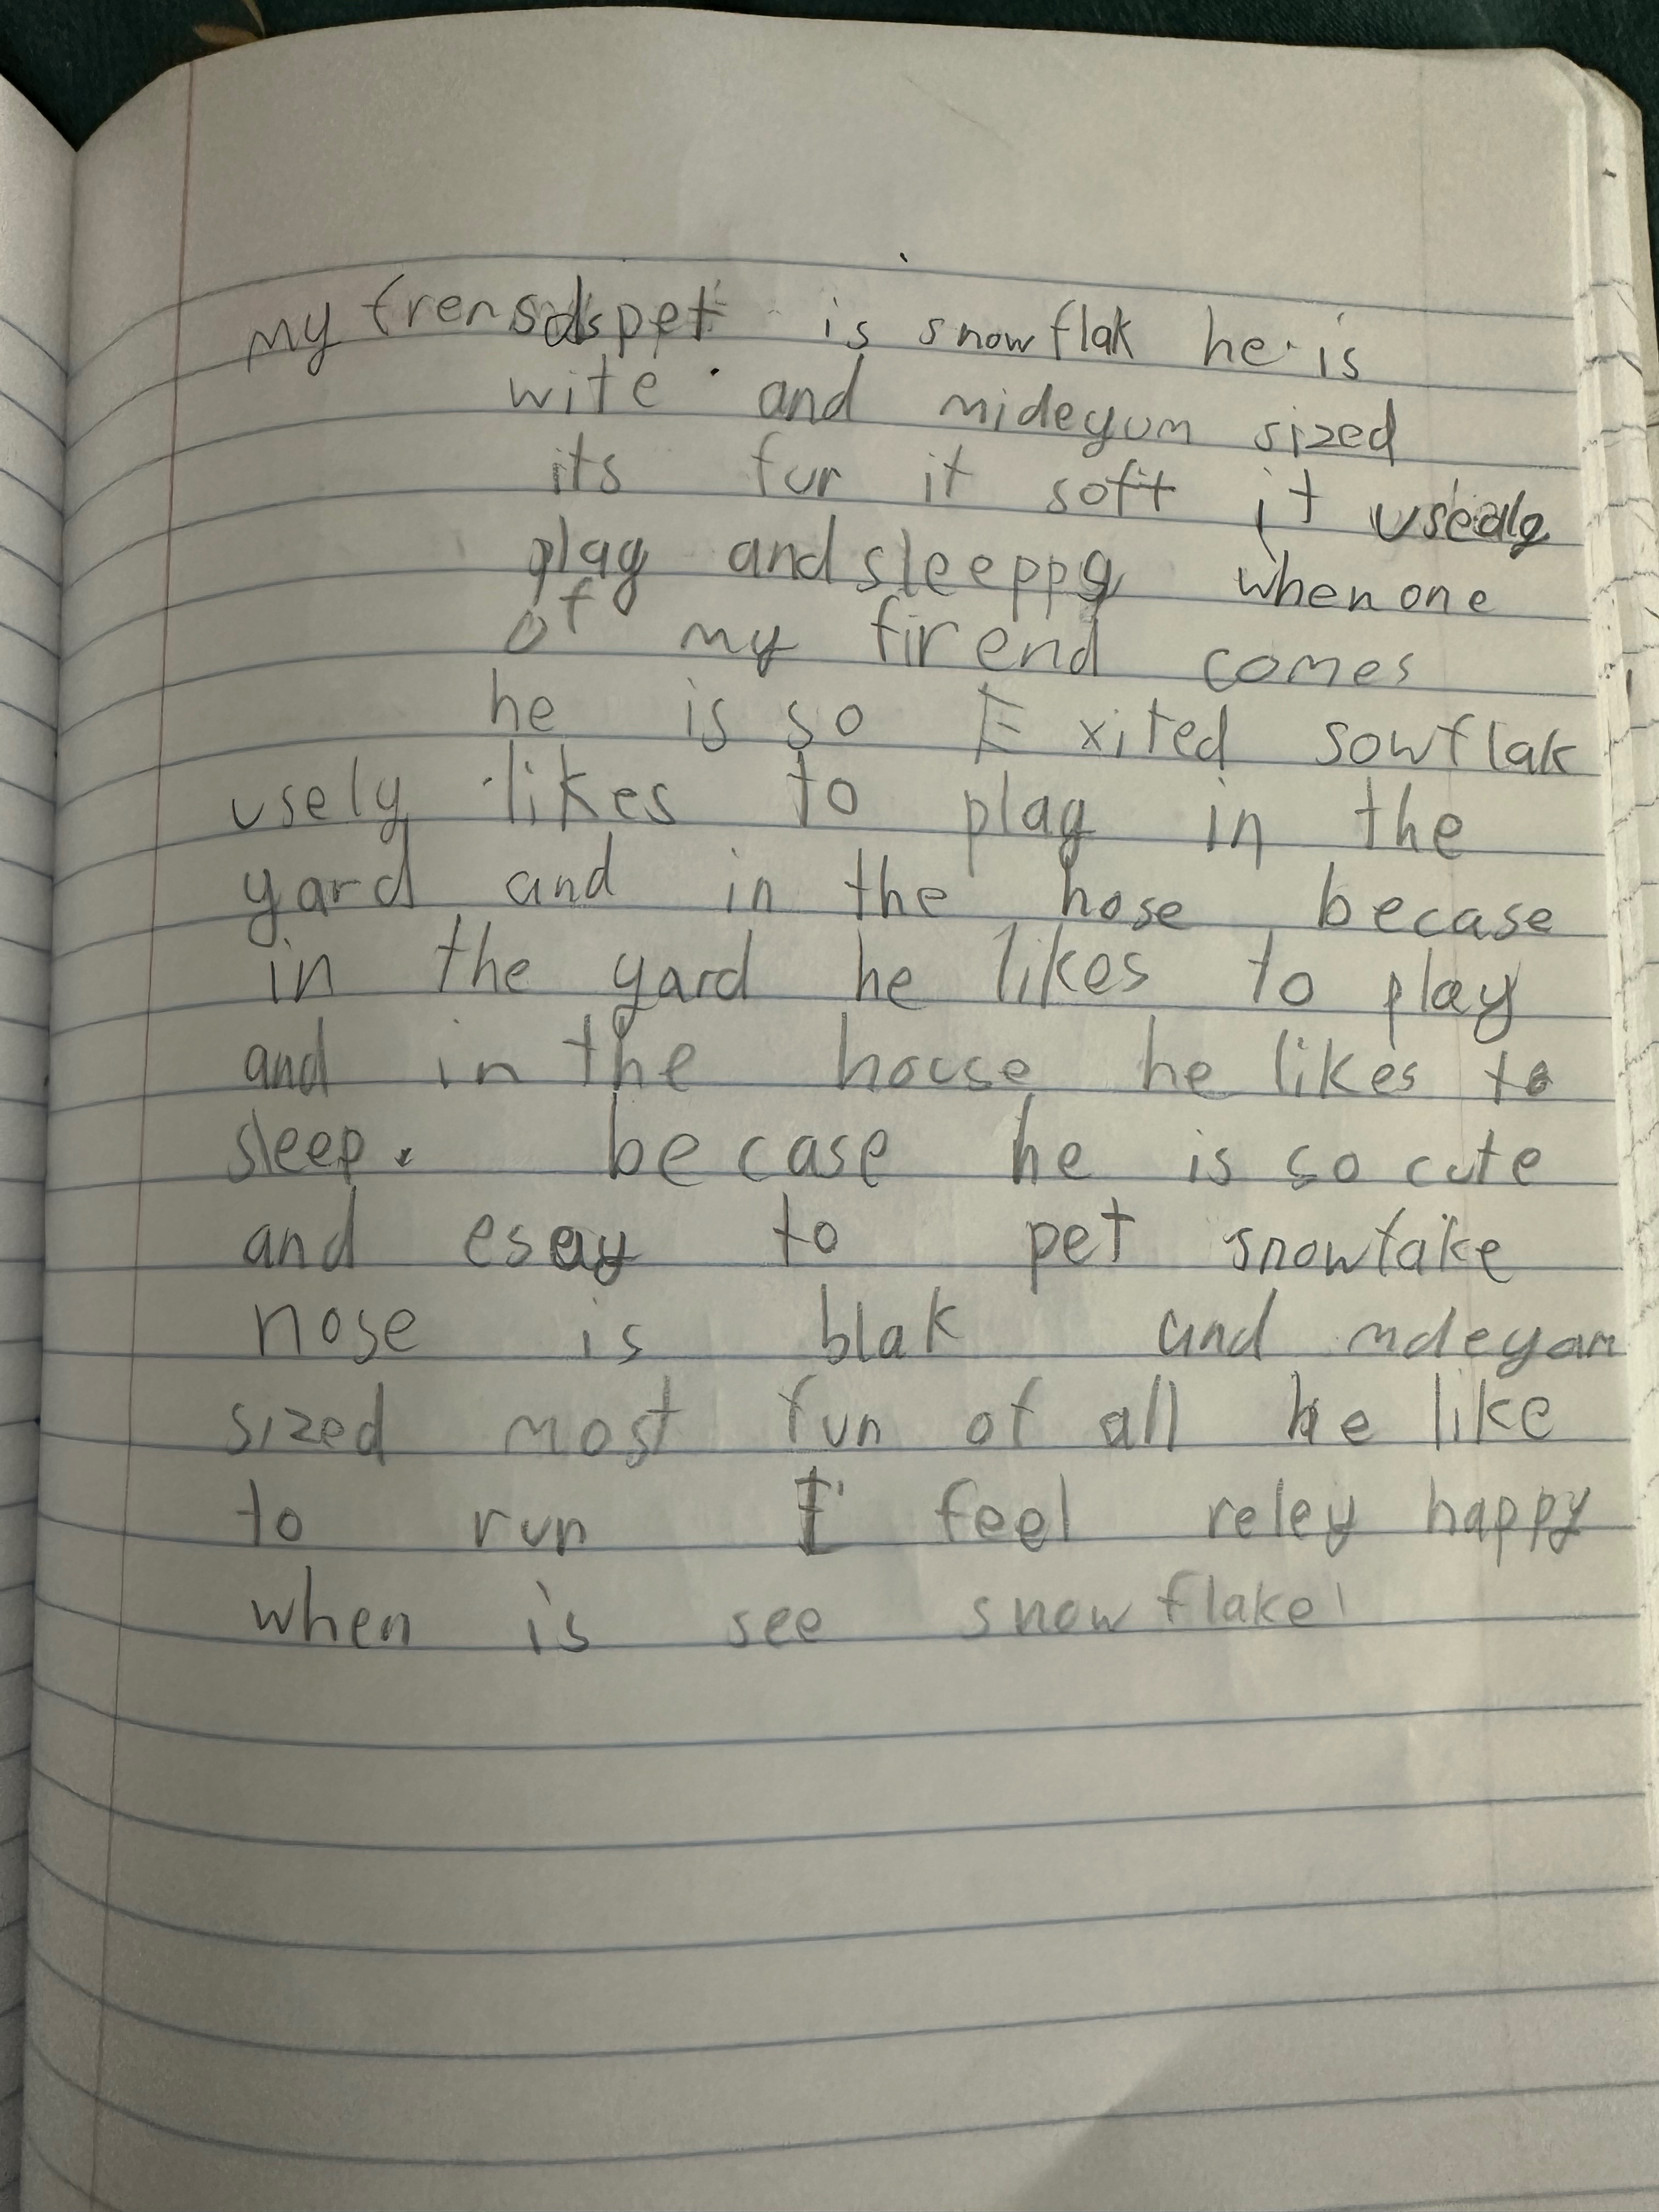 my frensdspet is snowflak he is
wite and mideyum sized
its fur it soft it
play and sleeppy when one
of my firend comes
he is so Exited sowflak
usely likes to play in the
yard and in the hose becase
in the yard he likes to play
and in the house he likes to
sleep. becase he is so cute
and esay to pet snowfake
nose is blak and mdeyam
sized most fun of all he like
to run I feel reley happy
when is see snowflake!